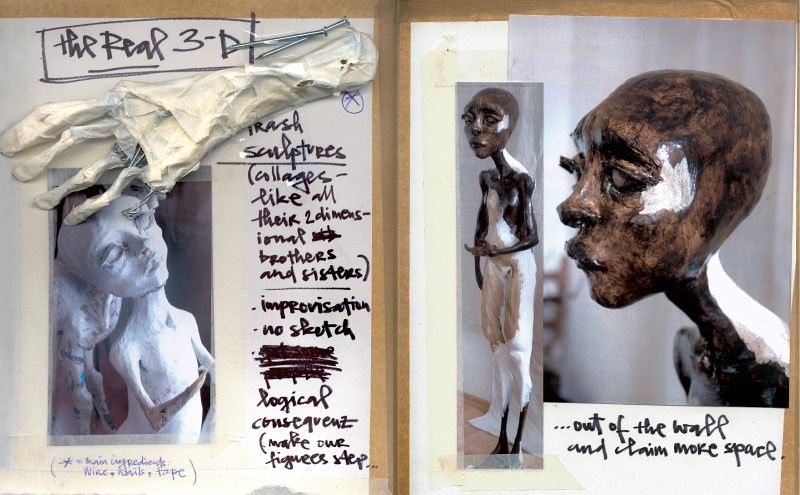 the Real 3-D
*
trash
sculptures
(collages-
like all
their 2 dimens-
ional
brothers
and sisters)
- improvisation
- no sketch
-
logical
consequenz
(make our
figures step...
(* = main ingredients:
Wire, Nails, Tape)
...out of the wall
and claim more space.